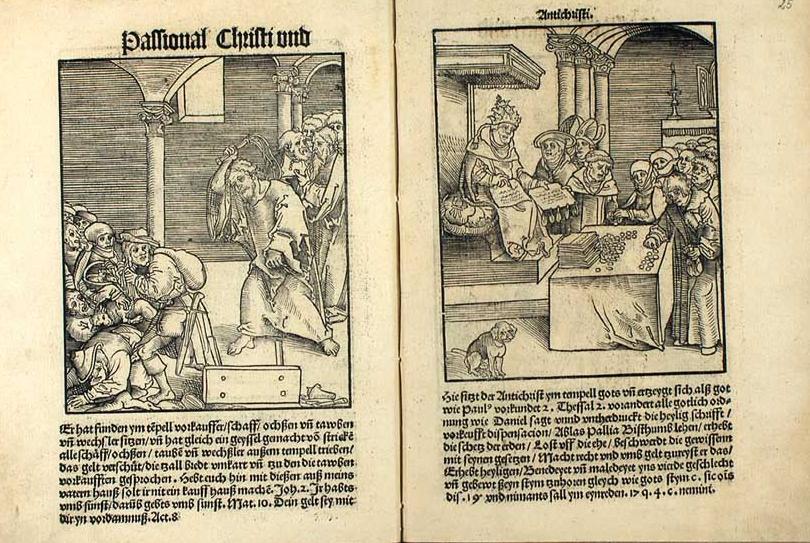 Passional Christi und
Er hat funden ym tẽpell vorkauffer/schaff/ ochßen vñ tawben
vñ wechsler sitzen/vñ hat gleich ein geyssel gemacht võ strickẽ
alle schäff/ochßen/ taubẽ vñ wechßler außem tempell trieben/
das gelt verschüt/die zall bredt umkart vñ zu den die tawben
vorkaufften gesprochen. Hebt euch hin mit dießen auß meins
vatern hauß solt ir nit ein kauff hauß machẽ. Joh.2. Ir habts
vmb sunst/darũb gebts vmb sunst. Mat.10. Dein gelt sey mit
dir yn vordamnuß. Act.8
Antichristi.
25
Hie sitzt der Antichrist ym tempell gots vñ ertzeygt sich alß got
wie Paulꝰ vorkundet 2. Thessal 2. vorandert alle gotlich ord-
nung wie Daniel sagt vnnd vntherdruckt die heylig schrifft/
vorkeufft dispensacion/ Ablas Pallia Bisthumb lehen/ erhebt
die schetz der erden/ Lost vff die ehe/ beschwerdt die gewissenn
mit seynen gesetzen/ Macht recht vnd vmb gelt zureyst er das/
Erhebt heyligen/ Benedeyet vñ maledeyet yns vierde geschlecht
vñ gebewt ßeyn stym tzuhoren gleych wie gots stym c. sic oĩs
dis. 19 vnd nimants sall ym eynreden. 17 q. 4. c. nemini.